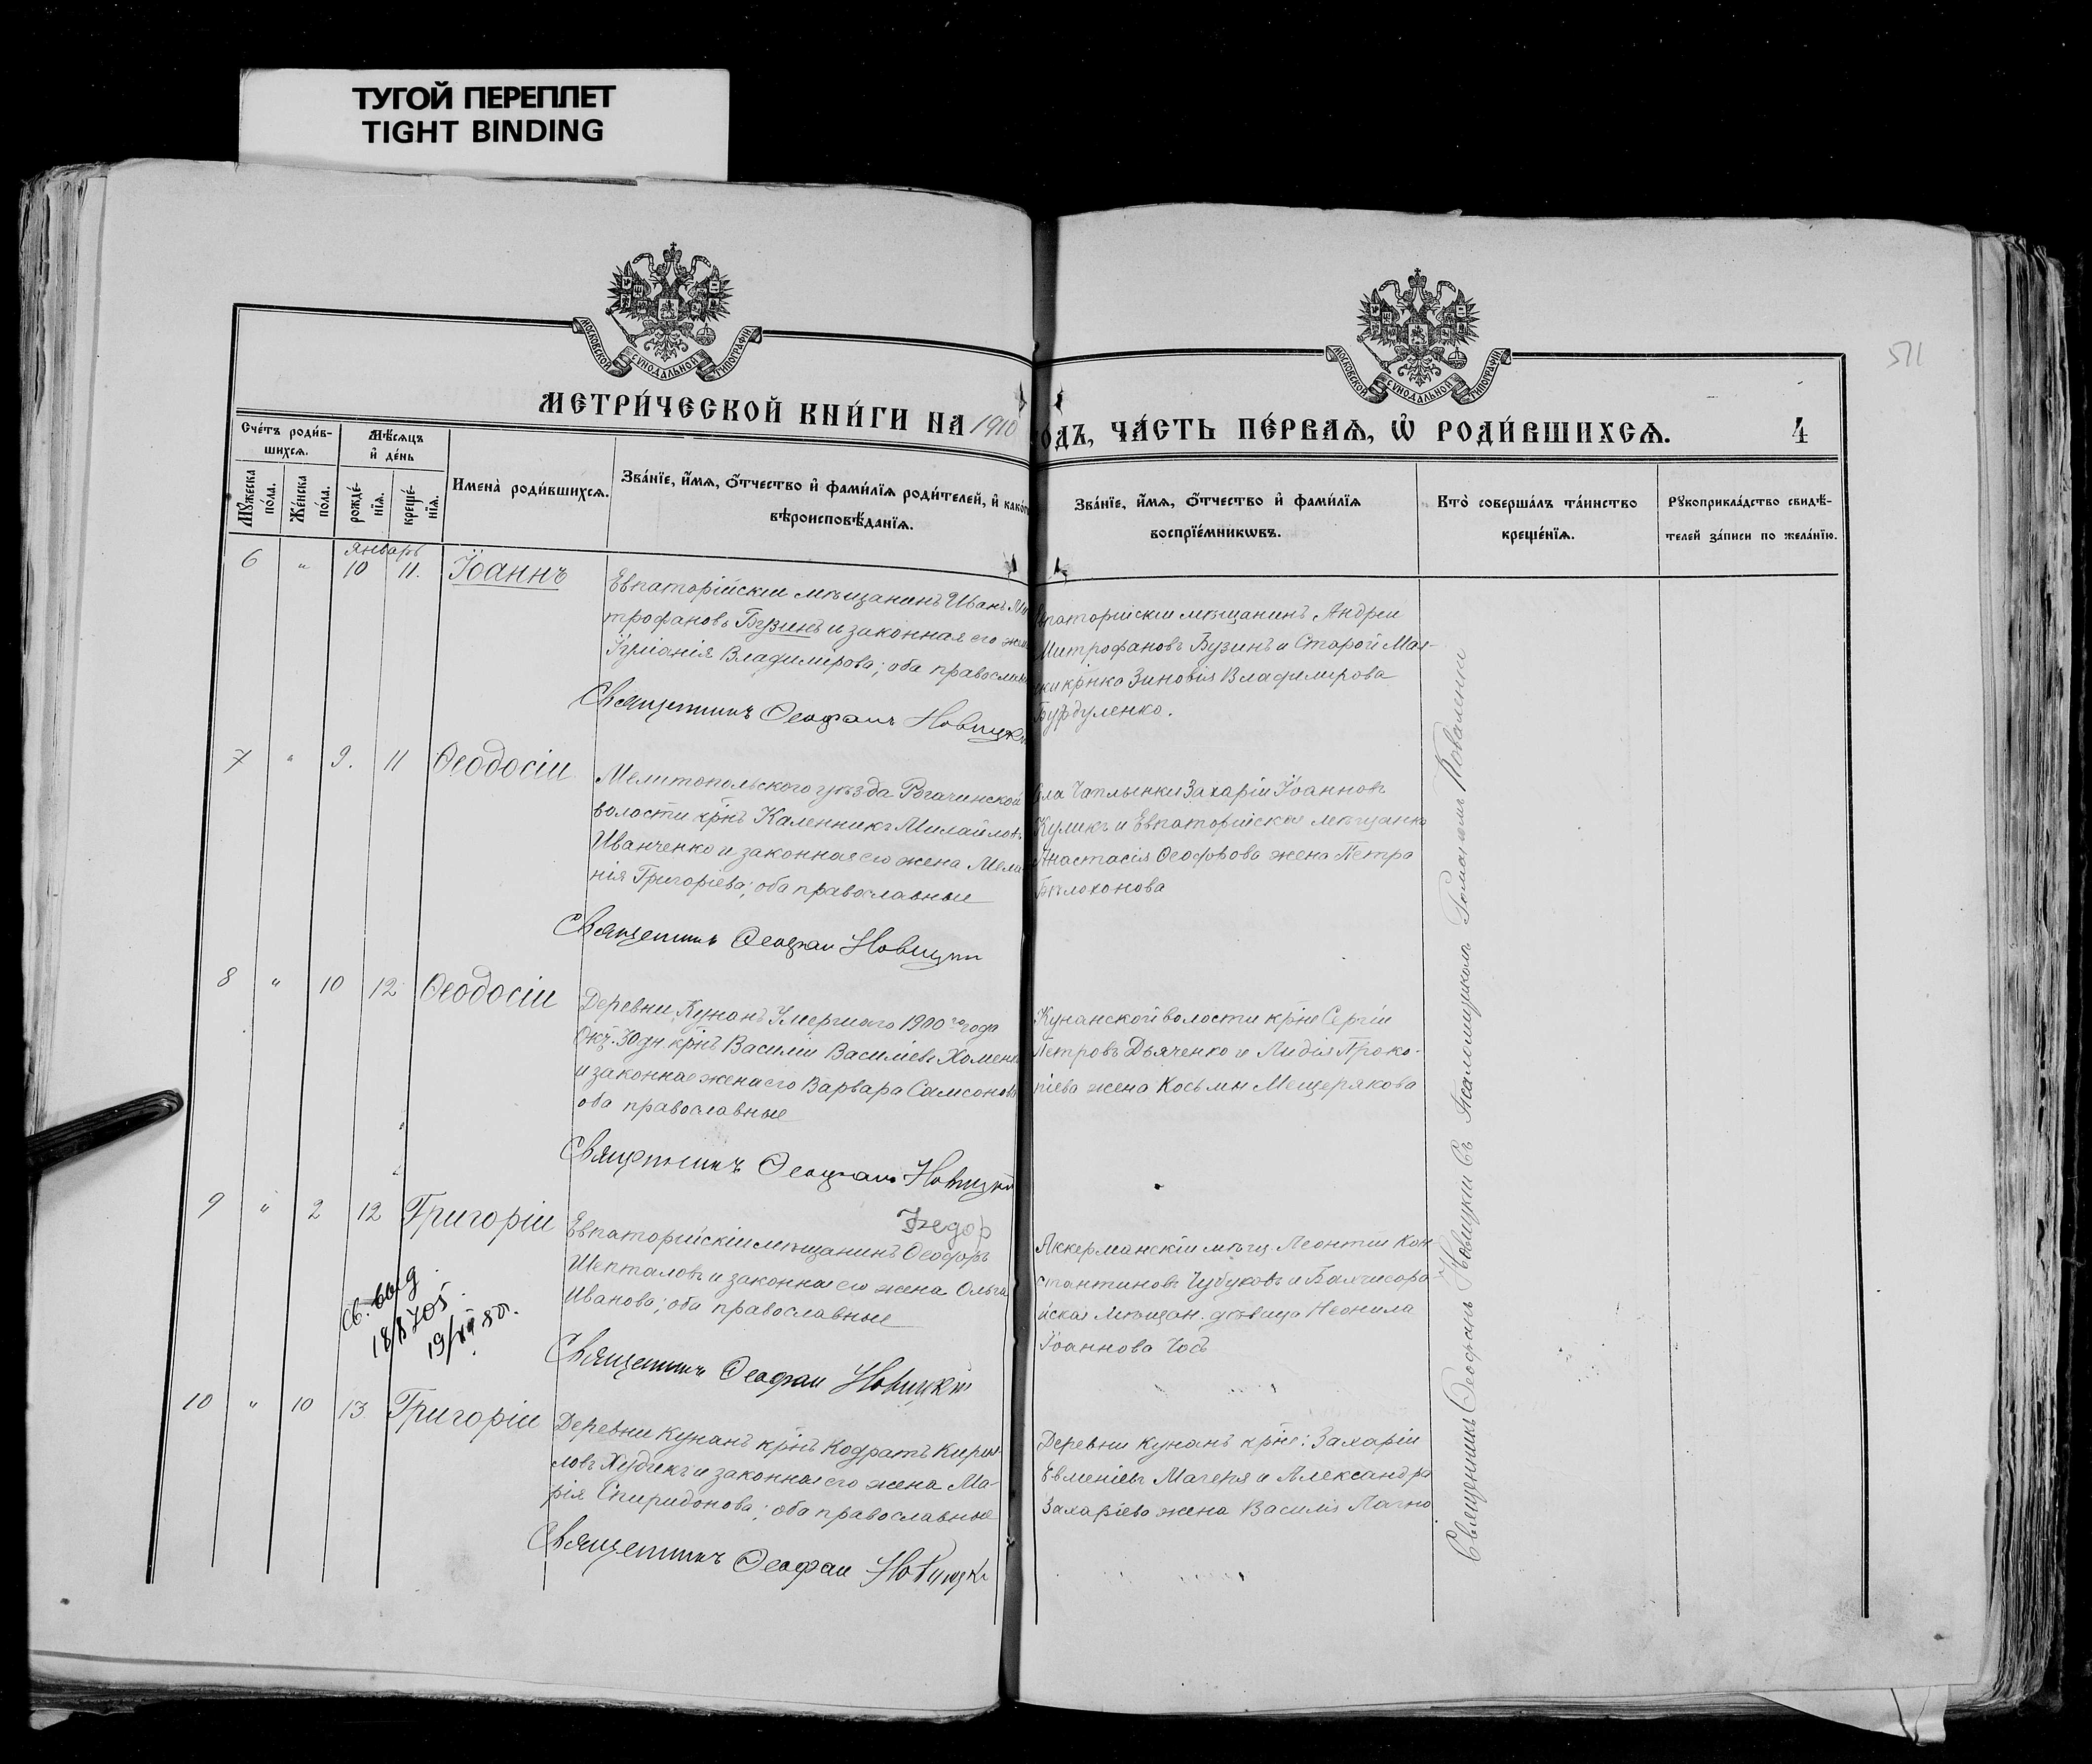 ТУГОЙ ПЕРЕПЛЕТ
TIGHT BINDING
МОСКОВСКОЙ СѴНОДАЛЬНОЙ ТИПОГРАФІИ
МОСКОВСКОЙ СѴНОДАЛЬНОЙ ТИПОГРАФІИ
511
МЕТРИ́ЧЕСКОЙ КНИ́ГИ НА 1910
ОДЪ, ЧА́СТЬ ПЕ́РВАѦ, Ѡ҆ РОДИ́ВШИХСѦ.
4
Сче́тъ роди́в-
шихсѧ.
Мѣ́сѧцъ
и҆ де́нь
Мꙋ́жеска
по́ла.
Же́нска
по́ла.
рожде́-
нїѧ.
креще́-
нїѧ.
Имена̀ роди́вшихсѧ.
Зва́нїе, и҆́мѧ, ѻ҆́тчество и҆ фами́лїѧ роди́телей, и҆ како́гѡ
вѣроисповѣ́данїѧ.
Зва́нїе, и҆́мѧ, ѻ҆́тчество и҆ фами́лїѧ
воспрїе́мникѡвъ.
Кто̀ соверша́лъ та́инство
креще́нїѧ.
Рꙋкоприкла́дство свидѣ́-
телей за́писи по жела́нїю.
Январь
6 " 10 11. Іоаннъ
Евпаторійскіи мѣщанинъ Иванъ Ми
трофановъ Бузинъ и законная его жена
Владимірова; оба православн
Священникъ Ѳеофанъ Новицкі
Евпаторійскіи мѣщанинъ Андреи
Митрофановъ Бузинъ и Старой Мая-
чки крнка Зиновія Владимірова
Бурдуленко.
7 " 9. 11 Ѳеодосіи
Мелитопольскаго уѣзда Рогачинской
волости крнъ Каленникъ Михайловъ
Иванченко и законная его жена Мела
нія Григоріева; оба православные
Священникъ Ѳеофан Новицкіи
Села Чаплынки Захаріи Іоанновъ
Куликъ и Евпаторійская мѣщанка
Анастасія жена Петра
Бѣлоконова
8 " 10 12 Ѳеодосіи
Деревни Кунанъ Умершаго 1900 го года
Окт. 30 дн. крнъ Василіи Василіевъ Хоменко
и законная жена его Варвара Самсонова
оба православные
Священникъ Ѳеофанъ Новицкіи
Кунанской волости крне Сергіи
Петровъ Дьяченко и Лидія Проко-
піева жена Косьмы Мещерякова
9 " 2 12 Григоріи
Федор
Евпаторійскіи мѣщанинъ Ѳеодоръ
Шепталовъ и законная его жена Ольга
Иванова; оба православные
Священникъ Ѳеофан Новицкіи
св. выд.
Аккерманскіи мѣщ. Леонтіи Кон
стантиновъ Чубуковъ и
йская мѣщан. дѣвица Неонила
Іоаннова
10 " 10 13 Григоріи
Деревни Кунанъ крнъ Кодратъ Кирил
ловъ Худикъ и законная его жена Ма-
рія Спиридонова; оба православные
Священникъ Ѳеофан Новицкі
Деревни Кунанъ крне: Захаріи
Евменіевъ и Александра
Захаріева жена Василія
Священникъ Ѳеофанъ Новицкіи съ Псаломщикомъ Коваленки